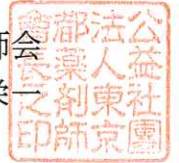 師会
一
公益社團
法人東京
都薬剤師
會長之印